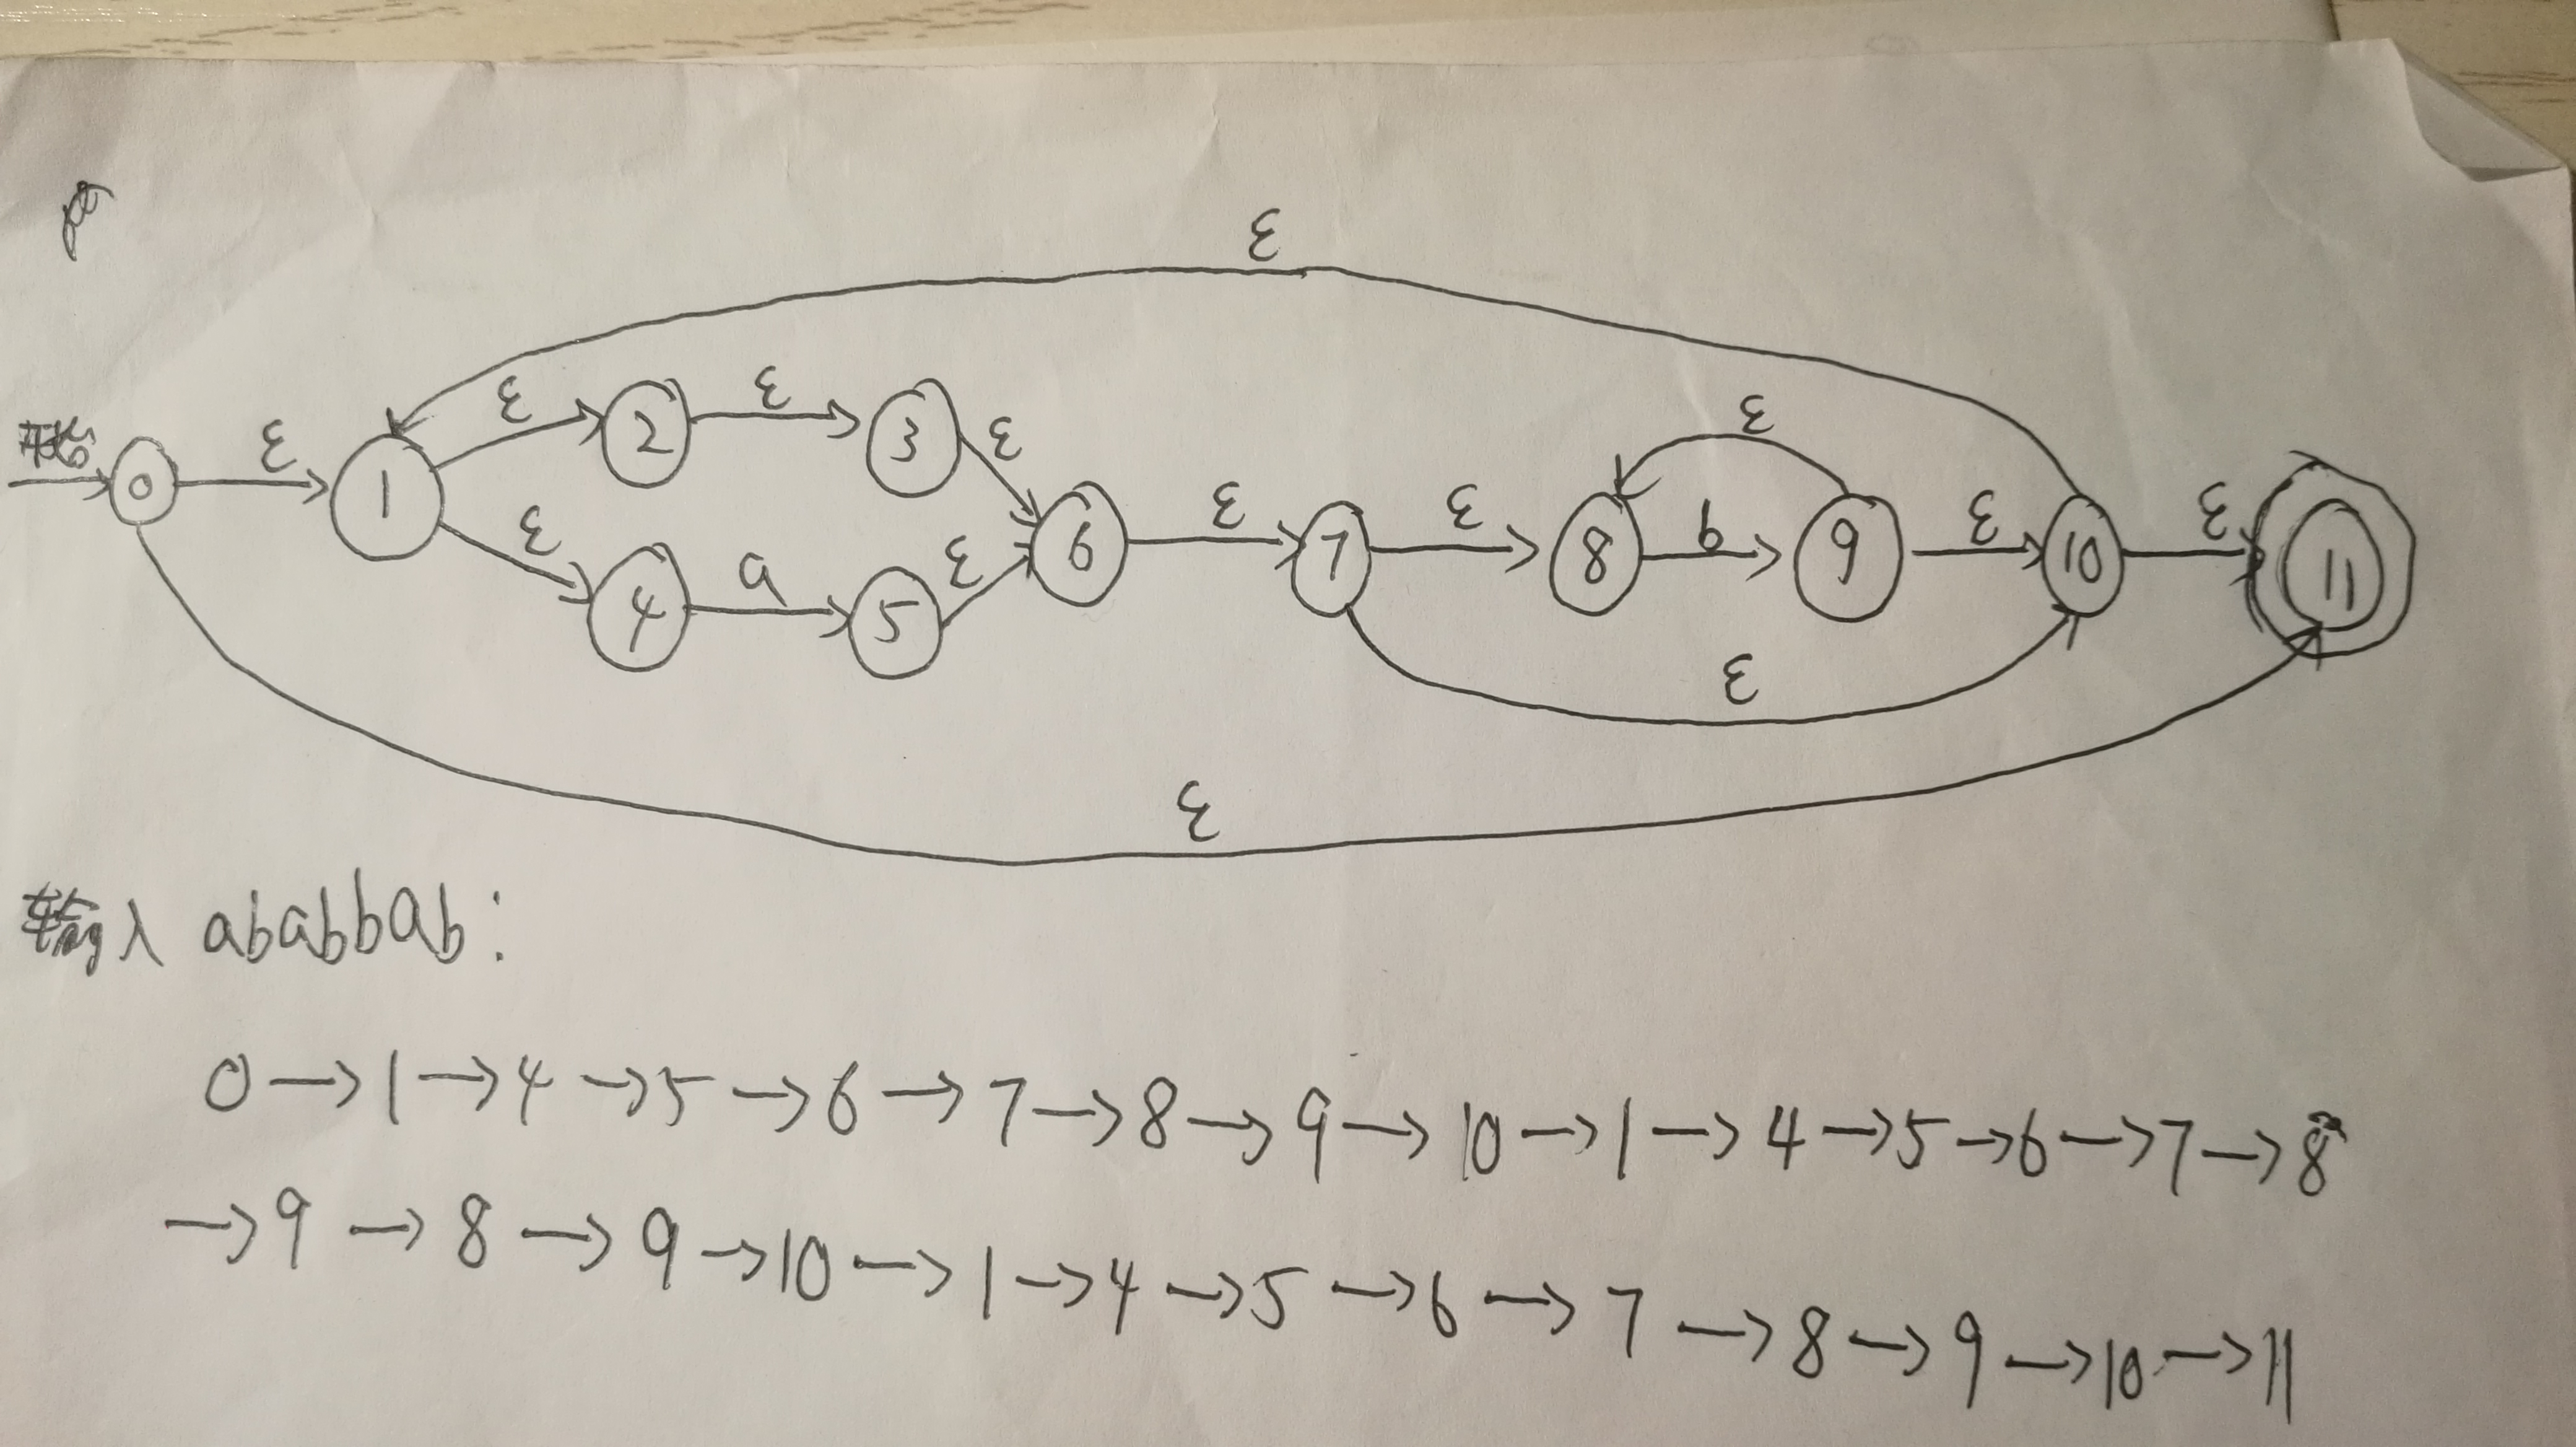 ε
ε ε ε
开始 0 ε 1 2 3 ε
ε a ε 6 ε 7 ε 8 b 9 ε 10 ε 11
4 5
ε
ε
输入 ababbab:
0→1→4→5→6→7→8→9→10→1→4→5→6→7→8
→9→8→9→10→1→4→5→6→7→8→9→10→11